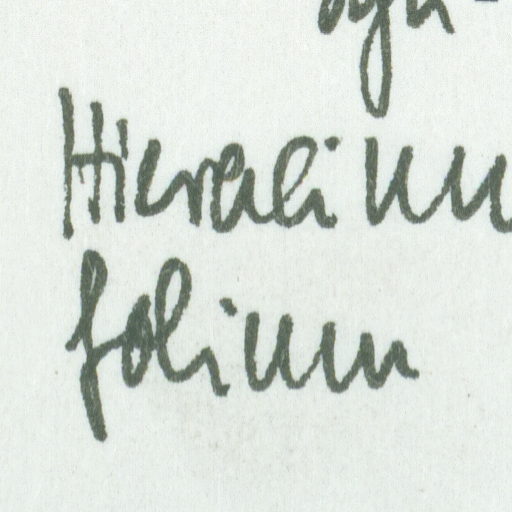 Hieracium
folium